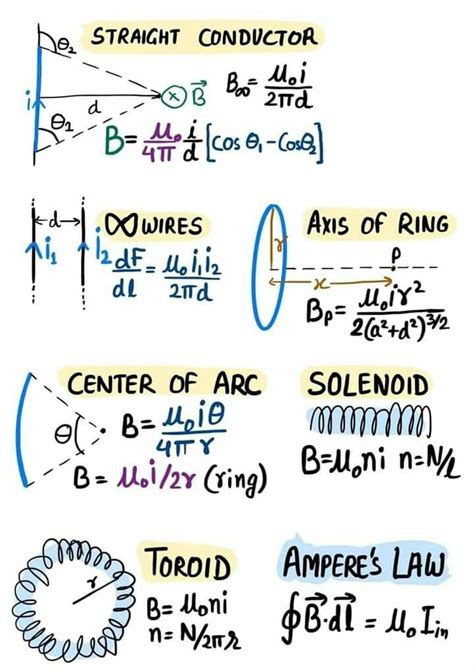 STRAIGHT CONDUCTOR
θ₂
i
d
B⃗
θ₁
B∞ = μ₀i / 2πd
B = μ₀/4π i/d [cos θ₁ - Cosθ₂]
d
i₁
i₂
∞ WIRES
dF/dl = μ₀i₁i₂ / 2πd
AXIS OF RING
r
P
x
Bₚ = μ₀ir² / 2(a²+d²)^3/2
CENTER OF ARC
θ
B = μ₀iθ / 4πr
B = μ₀i/2r (ring)
SOLENOID
B=μ₀ni n=N/l
TOROID
r
B = μ₀ni
n = N/2πr
AMPERE'S LAW
∮B⃗·dl⃗ = μ₀Iᵢₙ